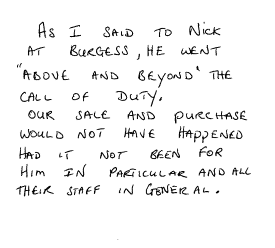 AS I SAID TO NICK
AT BURGESS, HE WENT
"ABOVE AND BEYOND" THE
CALL OF DUTY.
OUR SALE AND PURCHASE
WOULD NOT HAVE HAPPENED
HAD IT NOT BEEN FOR
HIM IN PARTICULAR AND ALL
THEIR STAFF IN GENERAL.